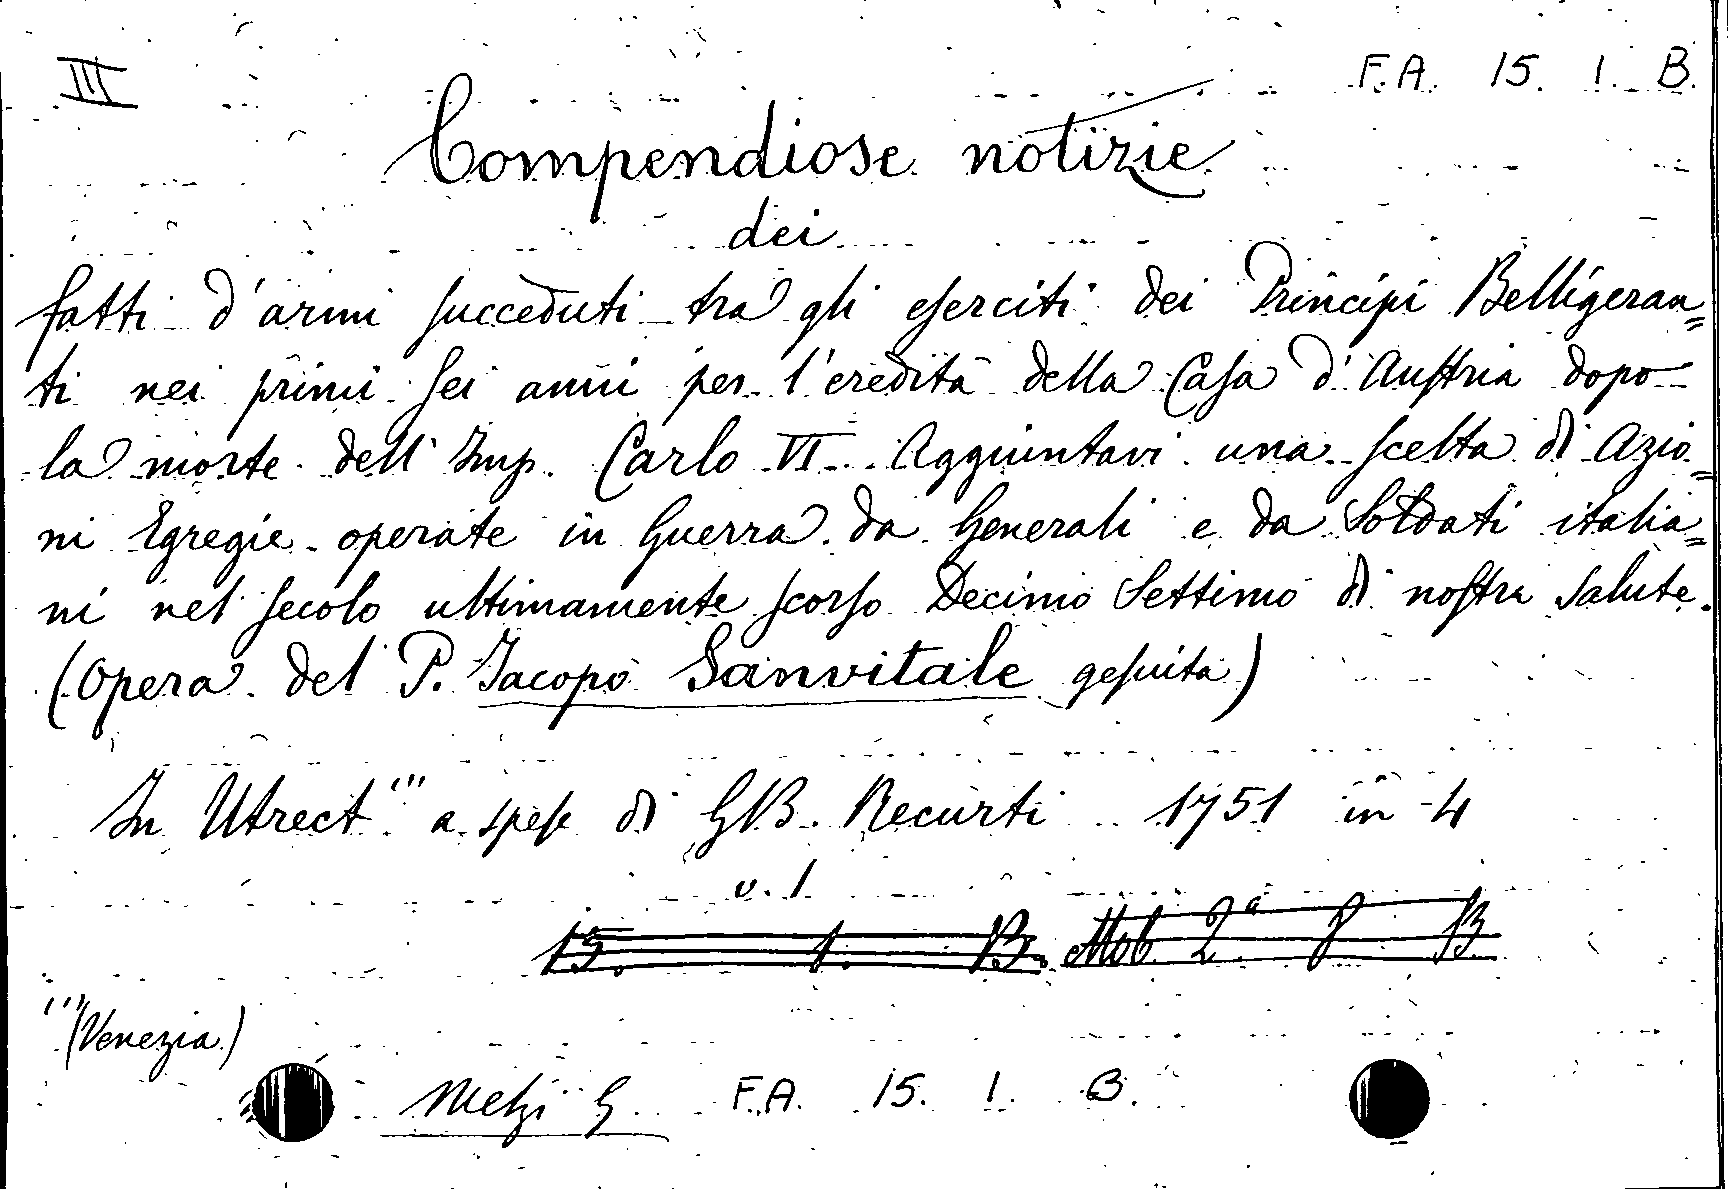 III F.A. 15. 1. B.
Compendiose notizie
dei
fatti d'armi succeduti tra gli eserciti dei Principi Belligeran=
ti nei primi sei anni per l'eredità della Casa d'Austria dopo
la morte dell'Imp. Carlo VI. Aggiuntavi una scelta di Azio=
ni Egregie operate in Guerra da Generali e da Soldati italia=
ni nel secolo ultimamente scorso Decimo Settimo di nostra salute.
(Opera del P. Jacopo Sanvitale gesuita)
In Utrect''' a spese di GB. Recurti 1751 in 4
v. 1
15. 1. B. Mob. 2ª 8 B.
'''(Venezia)
Melzi G F.A. 15. 1. B.